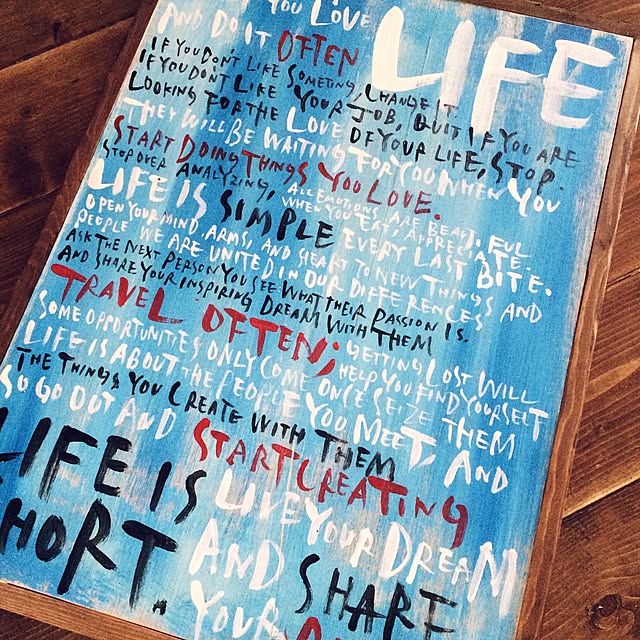 YOU LOVE
AND DO IT OFTEN LIFE
IF YOU DON'T LIKE SOMETING, CHANGE IT.
IF YOU DON'T LIKE YOUR JOB, QUIT IF YOU ARE
LOOKING FOR THE LOVE OF YOUR LIFE, STOP.
THEY WILL BE WAITING FOR YOU WHEN YOU
START DOING THINGS YOU LOVE.
STOP OVER ANALYZING, ALL EMOTIONS ARE BEAUTIFUL
LIFE IS SIMPLE WHEN YOU EAT, APPRECIATE
EVERY LAST BITE.
OPEN YOUR MIND, ARMS, AND HEART TO NEW THINGS AND
PEOPLE WE ARE UNITED IN OUR DIFFERENCES
ASK THE NEXT PERSON YOU SEE WHAT THEIR PASSION IS.
AND SHARE YOUR INSPIRING DREAM WITH THEM
TRAVEL OFTEN; GETTING LOST WILL
HELP YOU FIND YOURSELF
SOME OPPORTUNITIES ONLY COME ONCE SEIZE THEM
LIFE IS ABOUT THE PEOPLE YOU MEET, AND
THE THINGS YOU CREATE WITH THEM
SO GO OUT AND START CREATING
LIFE IS LIVE YOUR DREAM
SHORT. AND SHARE
YOUR